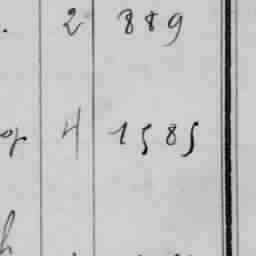 2 889
4 1585